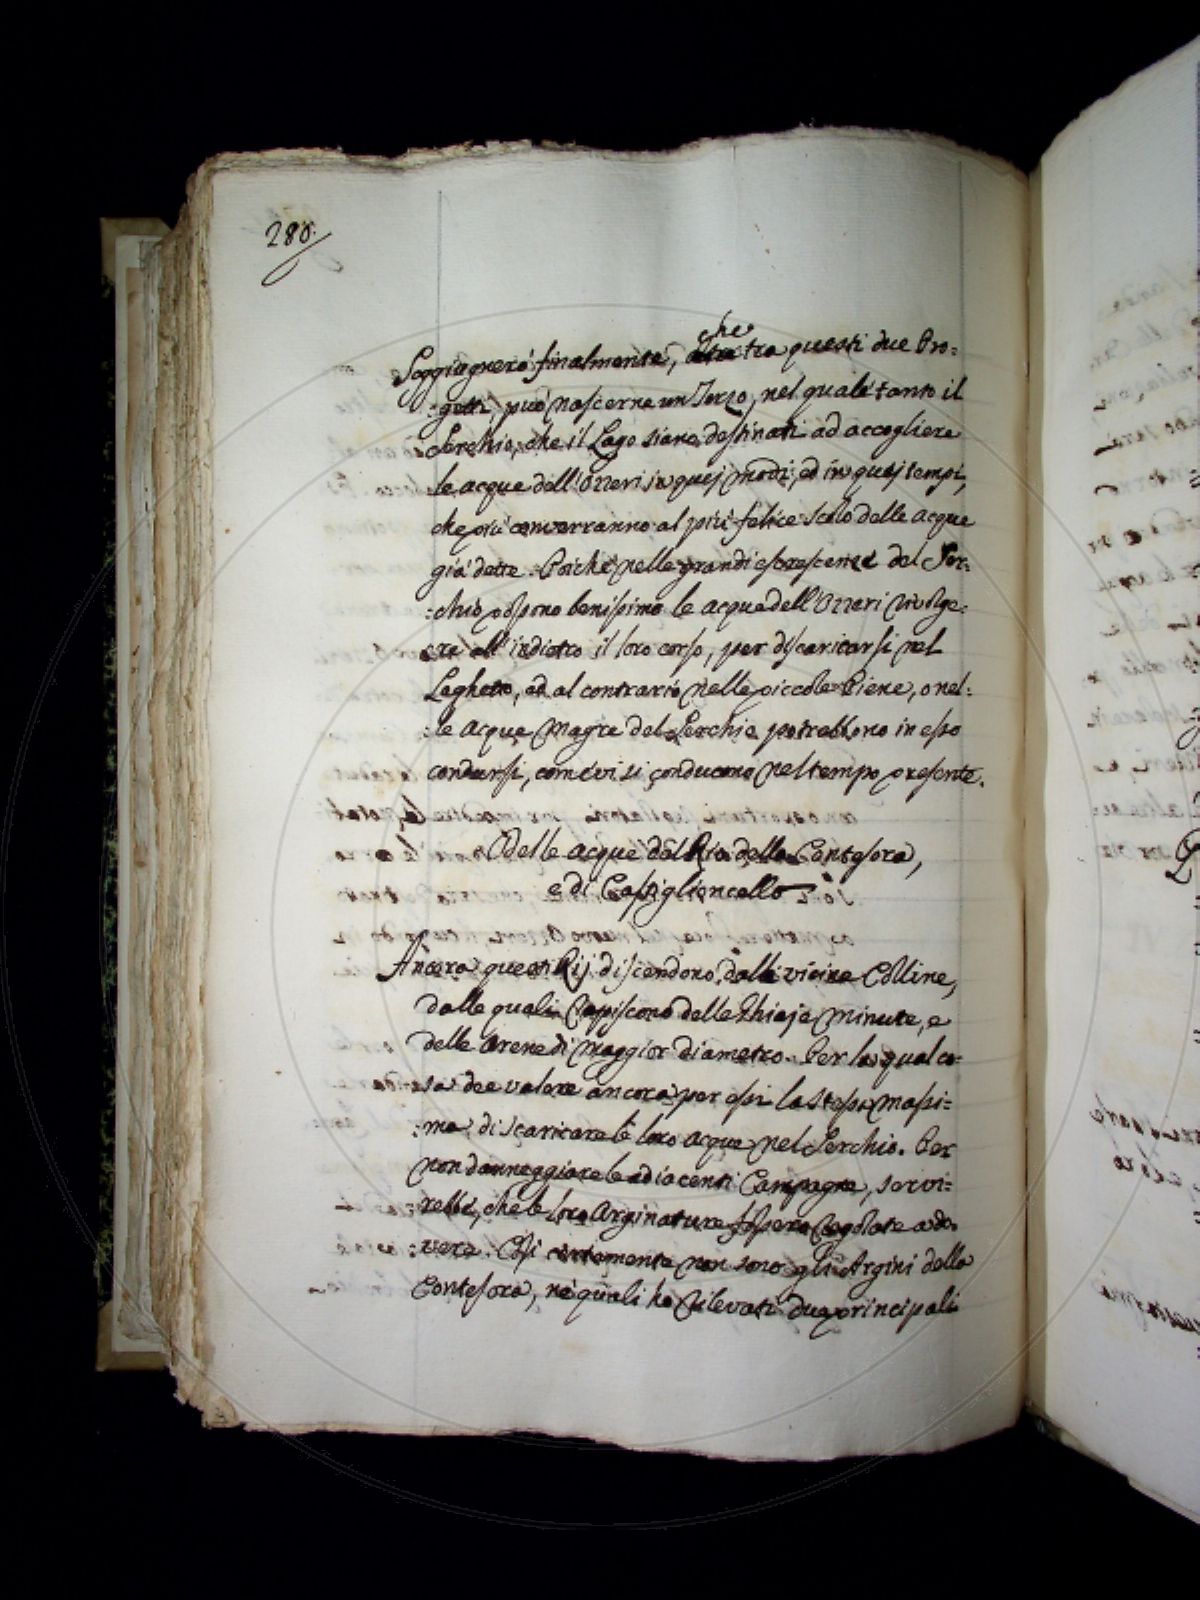 280.
che
Soggiugnerò finalmente, tra questi due Pro=
:getti, può nascerne un Terzo, nel quale tanto il
Serchio, che il Lago siano destinati ad accogliere
le acque dell'Ozzeri in quej modi, ed in quej tempi,
che più converranno al più felice scolo delle acque
già dette. Poichè nelle grandi escrescenze del Ser=
:chio possono benissimo le acque dell'Ozzeri rivolge=
re all'indietro il loro corso, per discaricarsi nel
Laghetto, ed al contrario nelle piccole Piene, o nel=
:le Acque Magre del Serchio potrebbono in esso
condursi, com'evi si conducono nel tempo presente.
Delle acque del Rio della Contesora,
e di Castiglioncello
Ancora questi Rij discendono dalle vicine Colline,
dalle quali rapiscono delle Ghiaje minute, e
delle Arene di maggior diametro. Per la qual co=
:sa dee valere ancora per essi la stessa massi=
:ma di scaricare le loro acque nel Serchio. Per
non danneggiare le adiacenti Campagne, servi=
rebbe, che le loro Arginature fossero regolate a do=
:vere. Così certamente non sono gli Argini della
Contesora, nè quali ho rilevati due principali